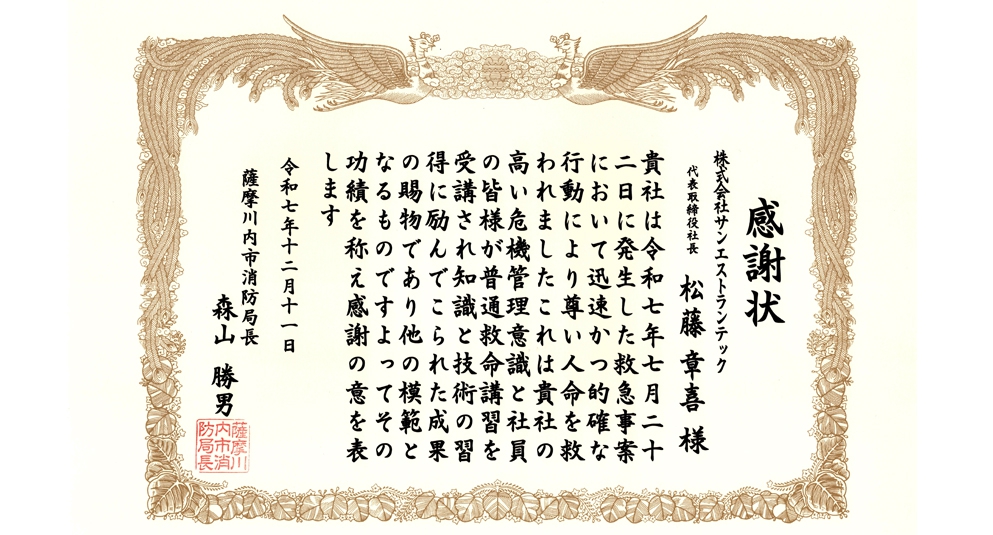 感謝状
株式会社サンエストランテック
代表取締役社長 松藤章喜様
貴社は令和七年七月二十
二日に発生した救急事案
において迅速かつ的確な
行動により尊い人命を救
われましたこれは貴社の
高い危機管理意識と社員
の皆様が普通救命講習を
受講され知識と技術の習
得に励んでこられた成果
の賜物であり他の模範と
なるものですよってその
功績を称え感謝の意を表
します
令和七年十二月十一日
薩摩川内市消防局長
森山 勝男
薩摩川
内市消
防局長